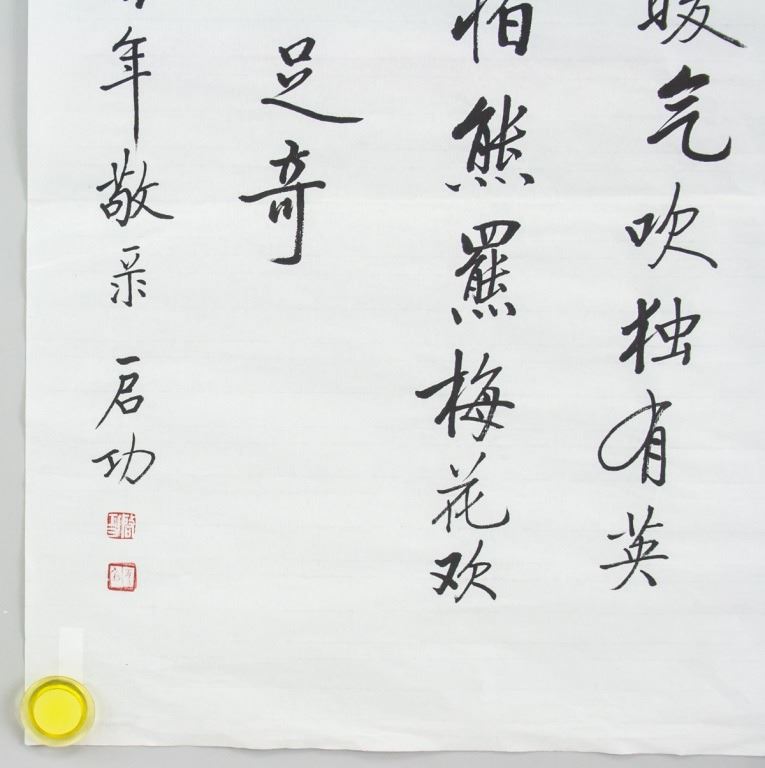 暖气吹独有英
怕熊罴梅花欢
足奇
年敬录 启功